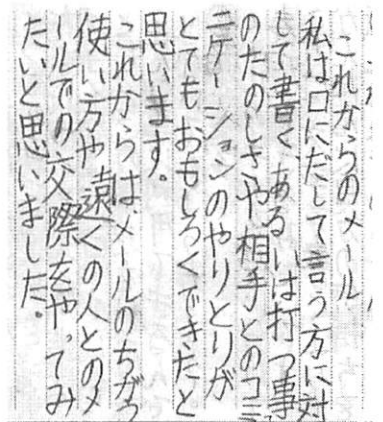 これからのメール
私は口にだして言う方に対
して書く、あるいは打つ事
のたのしさや相手とのコミ
ュニケーションのやりとりが
とてもおもしろくできたと
思います。
これからは、メールのちがう
使い方や遠くの人とのメ
ールでの交際をやってみ
たいと思いました。